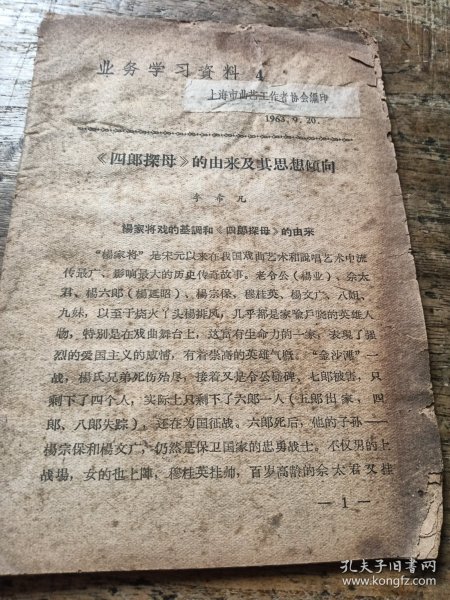 业务学习資料 4
上海市曲艺工作者协会編印
1963.9.20.
《四郎探母》的由来及其思想傾向
李希凡
楊家将戏的基調和《四郎探母》的由来
“楊家将”是宋元以来在我国戏曲艺术和說唱艺术中流
传最广、影响最大的历史传奇故事，老令公（楊业）、佘太
君、楊六郎（楊延昭）、楊宗保，穆桂英、楊文广、八姐、
九妹，以至于烧火丫头楊排风，几乎都是家喻戶晓的英雄人
物，特别是在戏曲舞台上，这富有生命力的一家，表現了强
烈的爱国主义的感情，有着崇高的英雄气概。“金沙滩”一
战，楊氏兄弟死伤殆尽，接着又是令公碰碑、七郎被害，只
剩下了四个人，实际上只剩下了六郎一人（五郎出家，四
郎、八郎失踪），还在为国征战。六郎死后，他的子孙——
楊宗保和楊文广，仍然是保卫国家的忠勇战士。不仅男的上
战場，女的也上陣，穆桂英挂帅，百岁高龄的佘太君又挂
— 1 —
孔夫子旧书网
www.kongfz.com